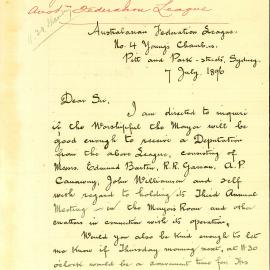 Federation League
Australasian Federation League.
No. 4 Young's Chambers.
Pitt and Park-streets, Sydney.
7 July, 1896
Dear Sir,
I am directed to inquire
if the Worshipful the Mayor will be
good enough to receive a Deputation
from the above League, consisting of
Messrs. Edmund Barton, R. R. Garran, A. P.
Canaway, John Williamson and self
with regard to holding its Third Annual
Meeting in the Mayor's Room and other
matters in connection with its operations.
Would you also be kind enough to let
me know if Thursday morning next, at 11.30
o'clock would be a convenient time for His